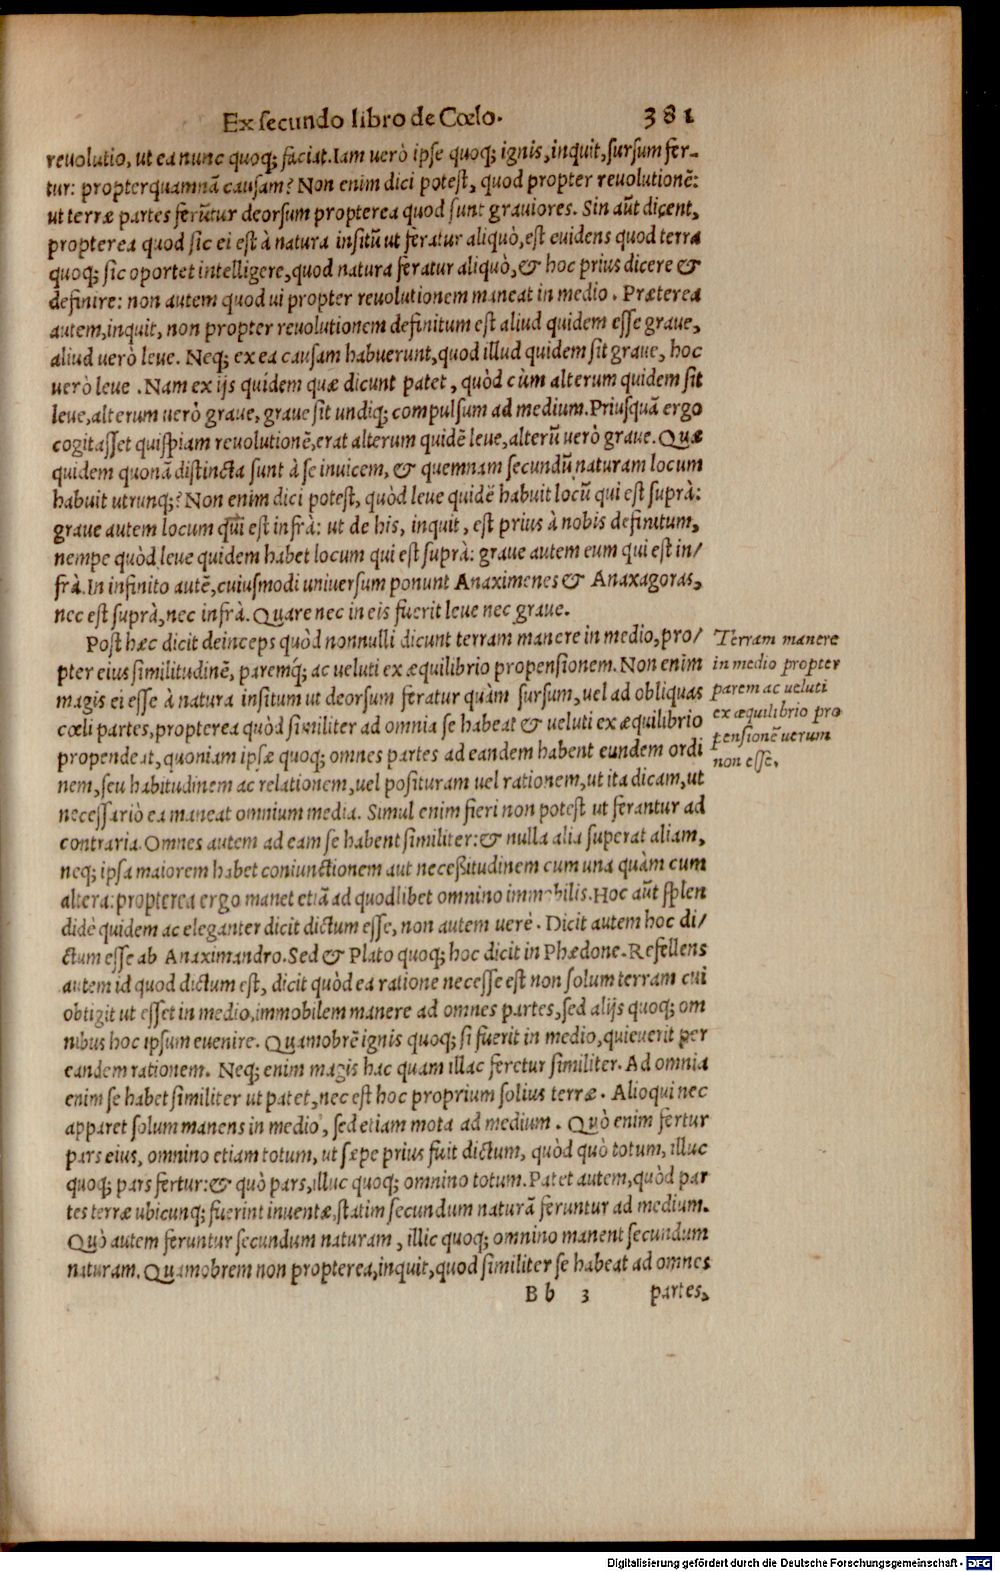 Ex secundo libro de Cœlo. 381
reuolutio, ut ea nunc quoq; faciat. Iam uerò ipse quoq; ignis, inquit, sursum fer-
tur: propterquamnã causam? Non enim dici potest, quod propter reuolutionẽ:
ut terræ partes ferũtur deorsum propterea quod sunt grauiores. Sin aũt dicent,
propterea quod sic ei est à natura insitũ ut feratur aliquò, est euidens quod terra
quoq; sic oportet intelligere, quod natura feratur aliquò, & hoc prius dicere &
definire: non autem quod ui propter reuolutionem maneat in medio. Præterea
autem, inquit, non propter reuolutionem definitum est aliud quidem esse graue,
aliud uerò leue. Neq; ex ea causam habuerunt, quod illud quidem sit graue, hoc
uerò leue. Nam ex ijs quidem quæ dicunt patet, quòd cùm alterum quidem sit
leue, alterum uerò graue, graue sit undiq; compulsum ad medium. Priusquã ergo
cogitasset quispiam reuolutionẽ, erat alterum quidẽ leue, alterũ uerò graue. Quæ
quidem quonã distincta sunt à se inuicem, & quemnam secundũ naturam locum
habuit utrunq;? Non enim dici potest, quòd leue quidẽ habuit locũ qui est suprà:
graue autem locum qui est infrà: ut de his, inquit, est prius à nobis definitum,
nempe quòd leue quidem habet locum qui est suprà: graue autem eum qui est in/
frà. In infinito autẽ, cuiusmodi uniuersum ponunt Anaximenes & Anaxagoras,
nec est suprà, nec infrà. Quare nec in eis fuerit leue nec graue.
Post hæc dicit deinceps quòd nonnulli dicunt terram manere in medio, pro/
pter eius similitudinẽ, paremq́; ac ueluti ex æquilibrio propensionem. Non enim
magis ei esse à natura insitum ut deorsum feratur quàm sursum, uel ad obliquas
cœli partes, propterea quòd similiter ad omnia se habeat & ueluti ex æquilibrio
propendeat, quoniam ipsæ quoq; omnes partes ad eandem habent eundem ordi
nem, seu habitudinem ac relationem, uel posituram uel rationem, ut ita dicam, ut
necessariò ea maneat omnium media. Simul enim fieri non potest ut ferantur ad
contraria. Omnes autem ad eam se habent similiter: & nulla alia superat aliam,
neq; ipsa maiorem habet coniunctionem aut necessitudinem cum una quàm cum
altera: propterea ergo manet etiã ad quodlibet omnino immobilis. Hoc aũt splen
didè quidem ac eleganter dicit dictum esse, non autem uerè. Dicit autem hoc di/
ctum esse ab Anaximandro. Sed & Plato quoq; hoc dicit in Phædone. Refellens
autem id quod dictum est, dicit quòd ea ratione necesse est non solum terram cui
obtigit ut esset in medio, immobilem manere ad omnes partes, sed alijs quoq; om
nibus hoc ipsum euenire. Quamobrẽ ignis quoq; si fuerit in medio, quieuerit per
eandem rationem. Neq; enim magis hac quam illac feretur similiter. Ad omnia
enim se habet similiter ut patet, nec est hoc proprium solius terræ. Alioqui nec
apparet solum manens in medio, sed etiam mota ad medium. Quò enim fertur
pars eius, omnino etiam totum, ut sæpe prius fuit dictum, quòd quò totum, illuc
quoq; pars fertur: & quò pars, illuc quoq; omnino totum. Patet autem, quòd par
tes terræ ubicunq; fuerint inuentæ, statim secundum naturã feruntur ad medium.
Quò autem feruntur secundum naturam, illic quoq; omnino manent secundum
naturam. Quamobrem non propterea, inquit, quod similiter se habeat ad omnes
Bb 3 partes,
Terram manere
in medio propter
parem ac ueluti
ex æquilibrio pro
pensionẽ uerum
non esse.
Digitalisierung gefördert durch die Deutsche Forschungsgemeinschaft - DFG